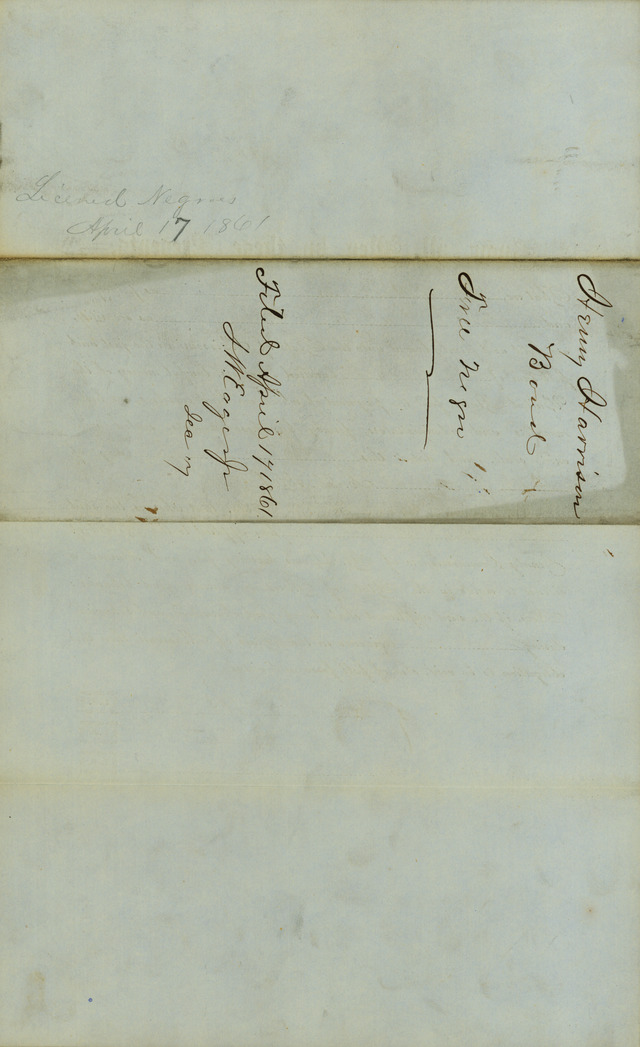 Licened Negroes
April 17 1861
Henry Harrison
Bond
Free Negro
Filed April 17 1861